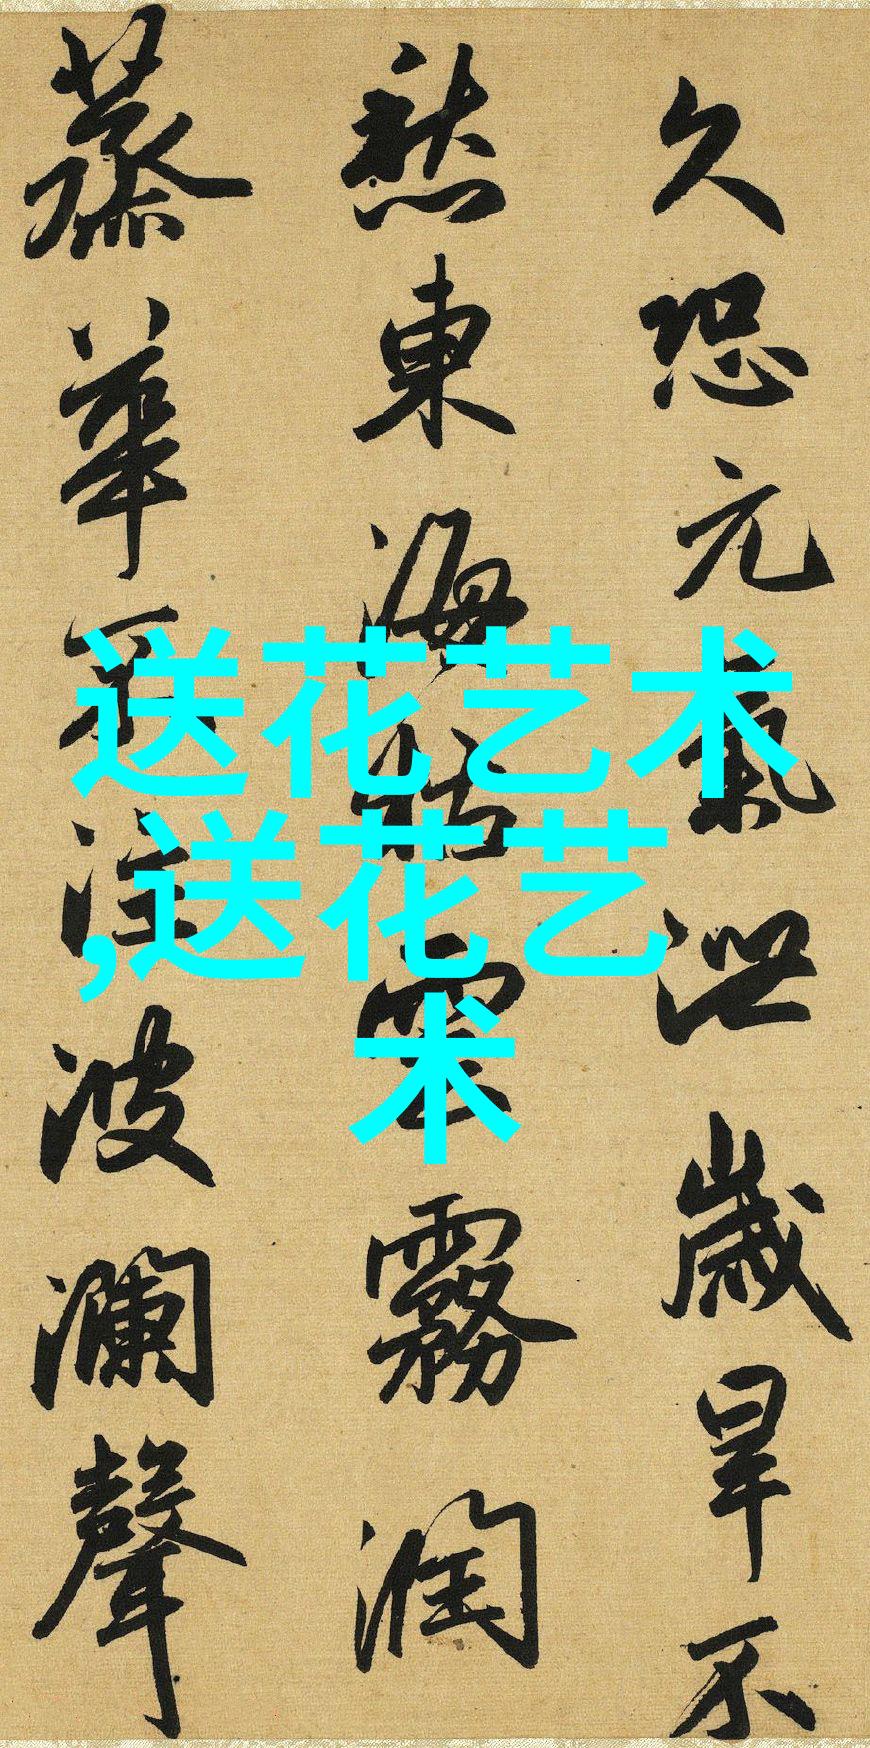 送花艺术
,送花艺
术
久恐元氣泄歲旱不
愁東海枯雲霧潤
蒸華注波瀾聲